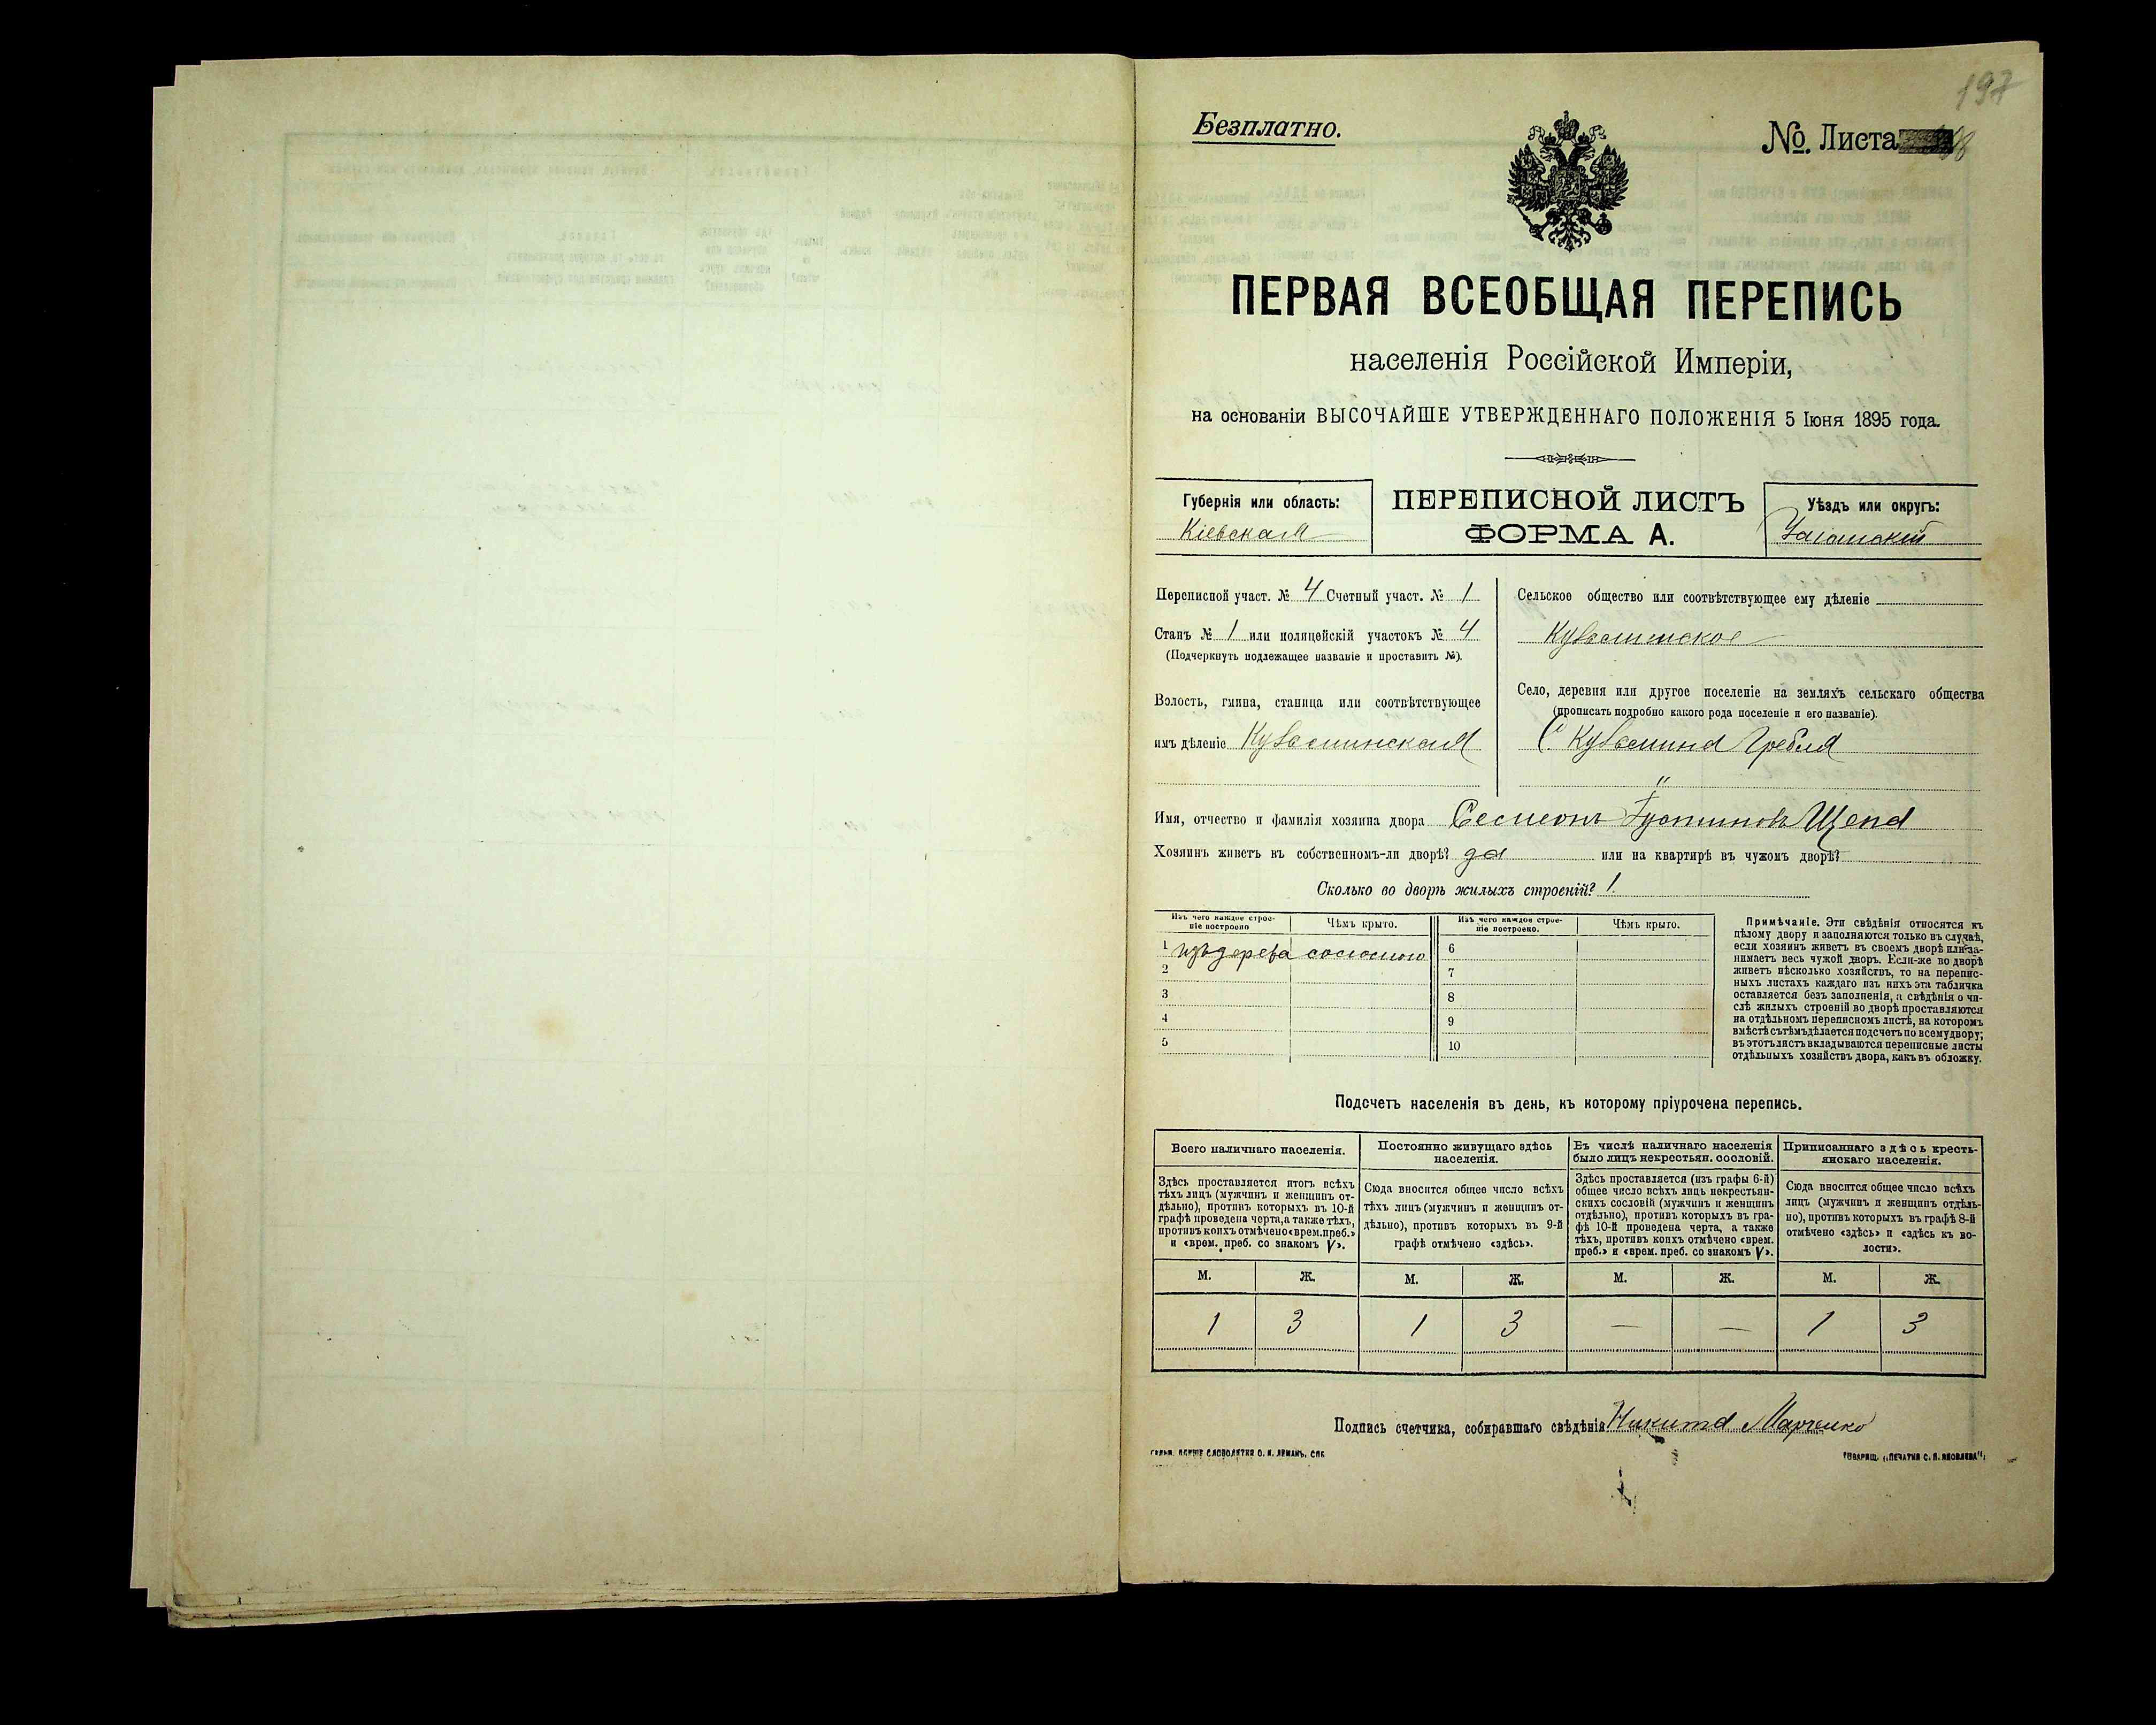 197
Безплатно.
№. Листа
ПЕРВАЯ ВСЕОБЩАЯ ПЕРЕПИСЬ
населенія Россійской Имперіи,
на основаніи ВЫСОЧАЙШЕ УТВЕРЖДЕННАГО ПОЛОЖЕНІЯ 5 Іюня 1895 года.
Губернія или область:
Кіевская
ПЕРЕПИСНОЙ ЛИСТЪ
ФОРМА А.
Уѣздъ или округъ:
Переписной участ. № 4 Счетный участ. № 1
Станъ № 1 или полицейскій участокъ № 4
(Подчеркнуть подлежащее названіе и проставить №).
Волость, гмина, станица или соотвѣтствующее
имъ дѣленіе Кузьминская
Сельское общество или соотвѣтствующее ему дѣленіе
Кузьминское
Село, деревня или другое поселеніе на земляхъ сельскаго общества
(прописать подробно какого рода поселеніе и его названіе).
С. Кузьмина Гребля
Имя, отчество и фамилія хозяина двора Семеонъ Іустиновъ Щепа
Хозяинъ живетъ въ собственномъ-ли дворѣ? да или на квартирѣ въ чужомъ дворѣ?
Сколько во дворѣ жилыхъ строеній? 1.
Изъ чего каждое строеніе построено
Чѣмъ крыто.
Изъ чего каждое строеніе построено.
Чѣмъ крыто.
1 изъ дерева соломою
2
3
4
5
6
7
8
9
10
Примѣчаніе. Эти свѣдѣнія относятся къ
цѣлому двору и заполняются только въ случаѣ,
если хозяинъ живетъ въ своемъ дворѣ или за-
нимаетъ весь чужой дворъ. Если-же во дворѣ
живетъ нѣсколько хозяйствъ, то на перепис-
ныхъ листахъ каждаго изъ нихъ эта табличка
оставляется безъ заполненія, а свѣдѣнія о чи-
слѣ жилыхъ строеній во дворѣ проставляются
на отдѣльномъ переписномъ листѣ, на которомъ
вмѣстѣ съ тѣмъ дѣлается подсчетъ по всему двору;
въ этотъ листъ вкладываются переписные листы
отдѣльныхъ хозяйствъ двора, какъ въ обложку.
Подсчетъ населенія въ день, къ которому пріурочена перепись.
Всего наличнаго населенія.
Здѣсь проставляется итогъ всѣхъ
тѣхъ лицъ (мужчинъ и женщинъ от-
дѣльно), противъ которыхъ въ 10-й
графѣ проведена черта, а также тѣхъ,
противъ коихъ отмѣчено «врем. преб.»
и «врем. преб. со знакомъ V».
Постоянно живущаго здѣсь
населенія.
Сюда вносится общее число всѣхъ
тѣхъ лицъ (мужчинъ и женщинъ от-
дѣльно), противъ которыхъ въ 9-й
графѣ отмѣчено «здѣсь».
Въ числѣ наличнаго населенія
было лицъ некрестьян. сословій.
Здѣсь проставляется (изъ графы 6-й)
общее число всѣхъ лицъ некрестьян-
скихъ сословій (мужчинъ и женщинъ
отдѣльно), противъ которыхъ въ гра-
фѣ 10-й проведена черта, а также
тѣхъ, противъ коихъ отмѣчено «врем.
преб.» и «врем. преб. со знакомъ V».
Приписаннаго здѣсь кресть-
янскаго населенія.
Сюда вносится общее число всѣхъ
лицъ (мужчинъ и женщинъ отдѣль-
но), противъ которыхъ въ графѣ 8-й
отмѣчено «здѣсь» и «здѣсь къ во-
лости».
М. Ж. М. Ж. М. Ж. М. Ж.
1 3 1 3 — — 1 3
Подпись счетчика, собиравшаго свѣдѣнія Никита Марченко
СЛОВОЛИТНЯ О. И. ЛЕМАНЪ, СПБ
ТОВАРИЩ. „ПЕЧАТНЯ С. П. ЯКОВЛЕВА“